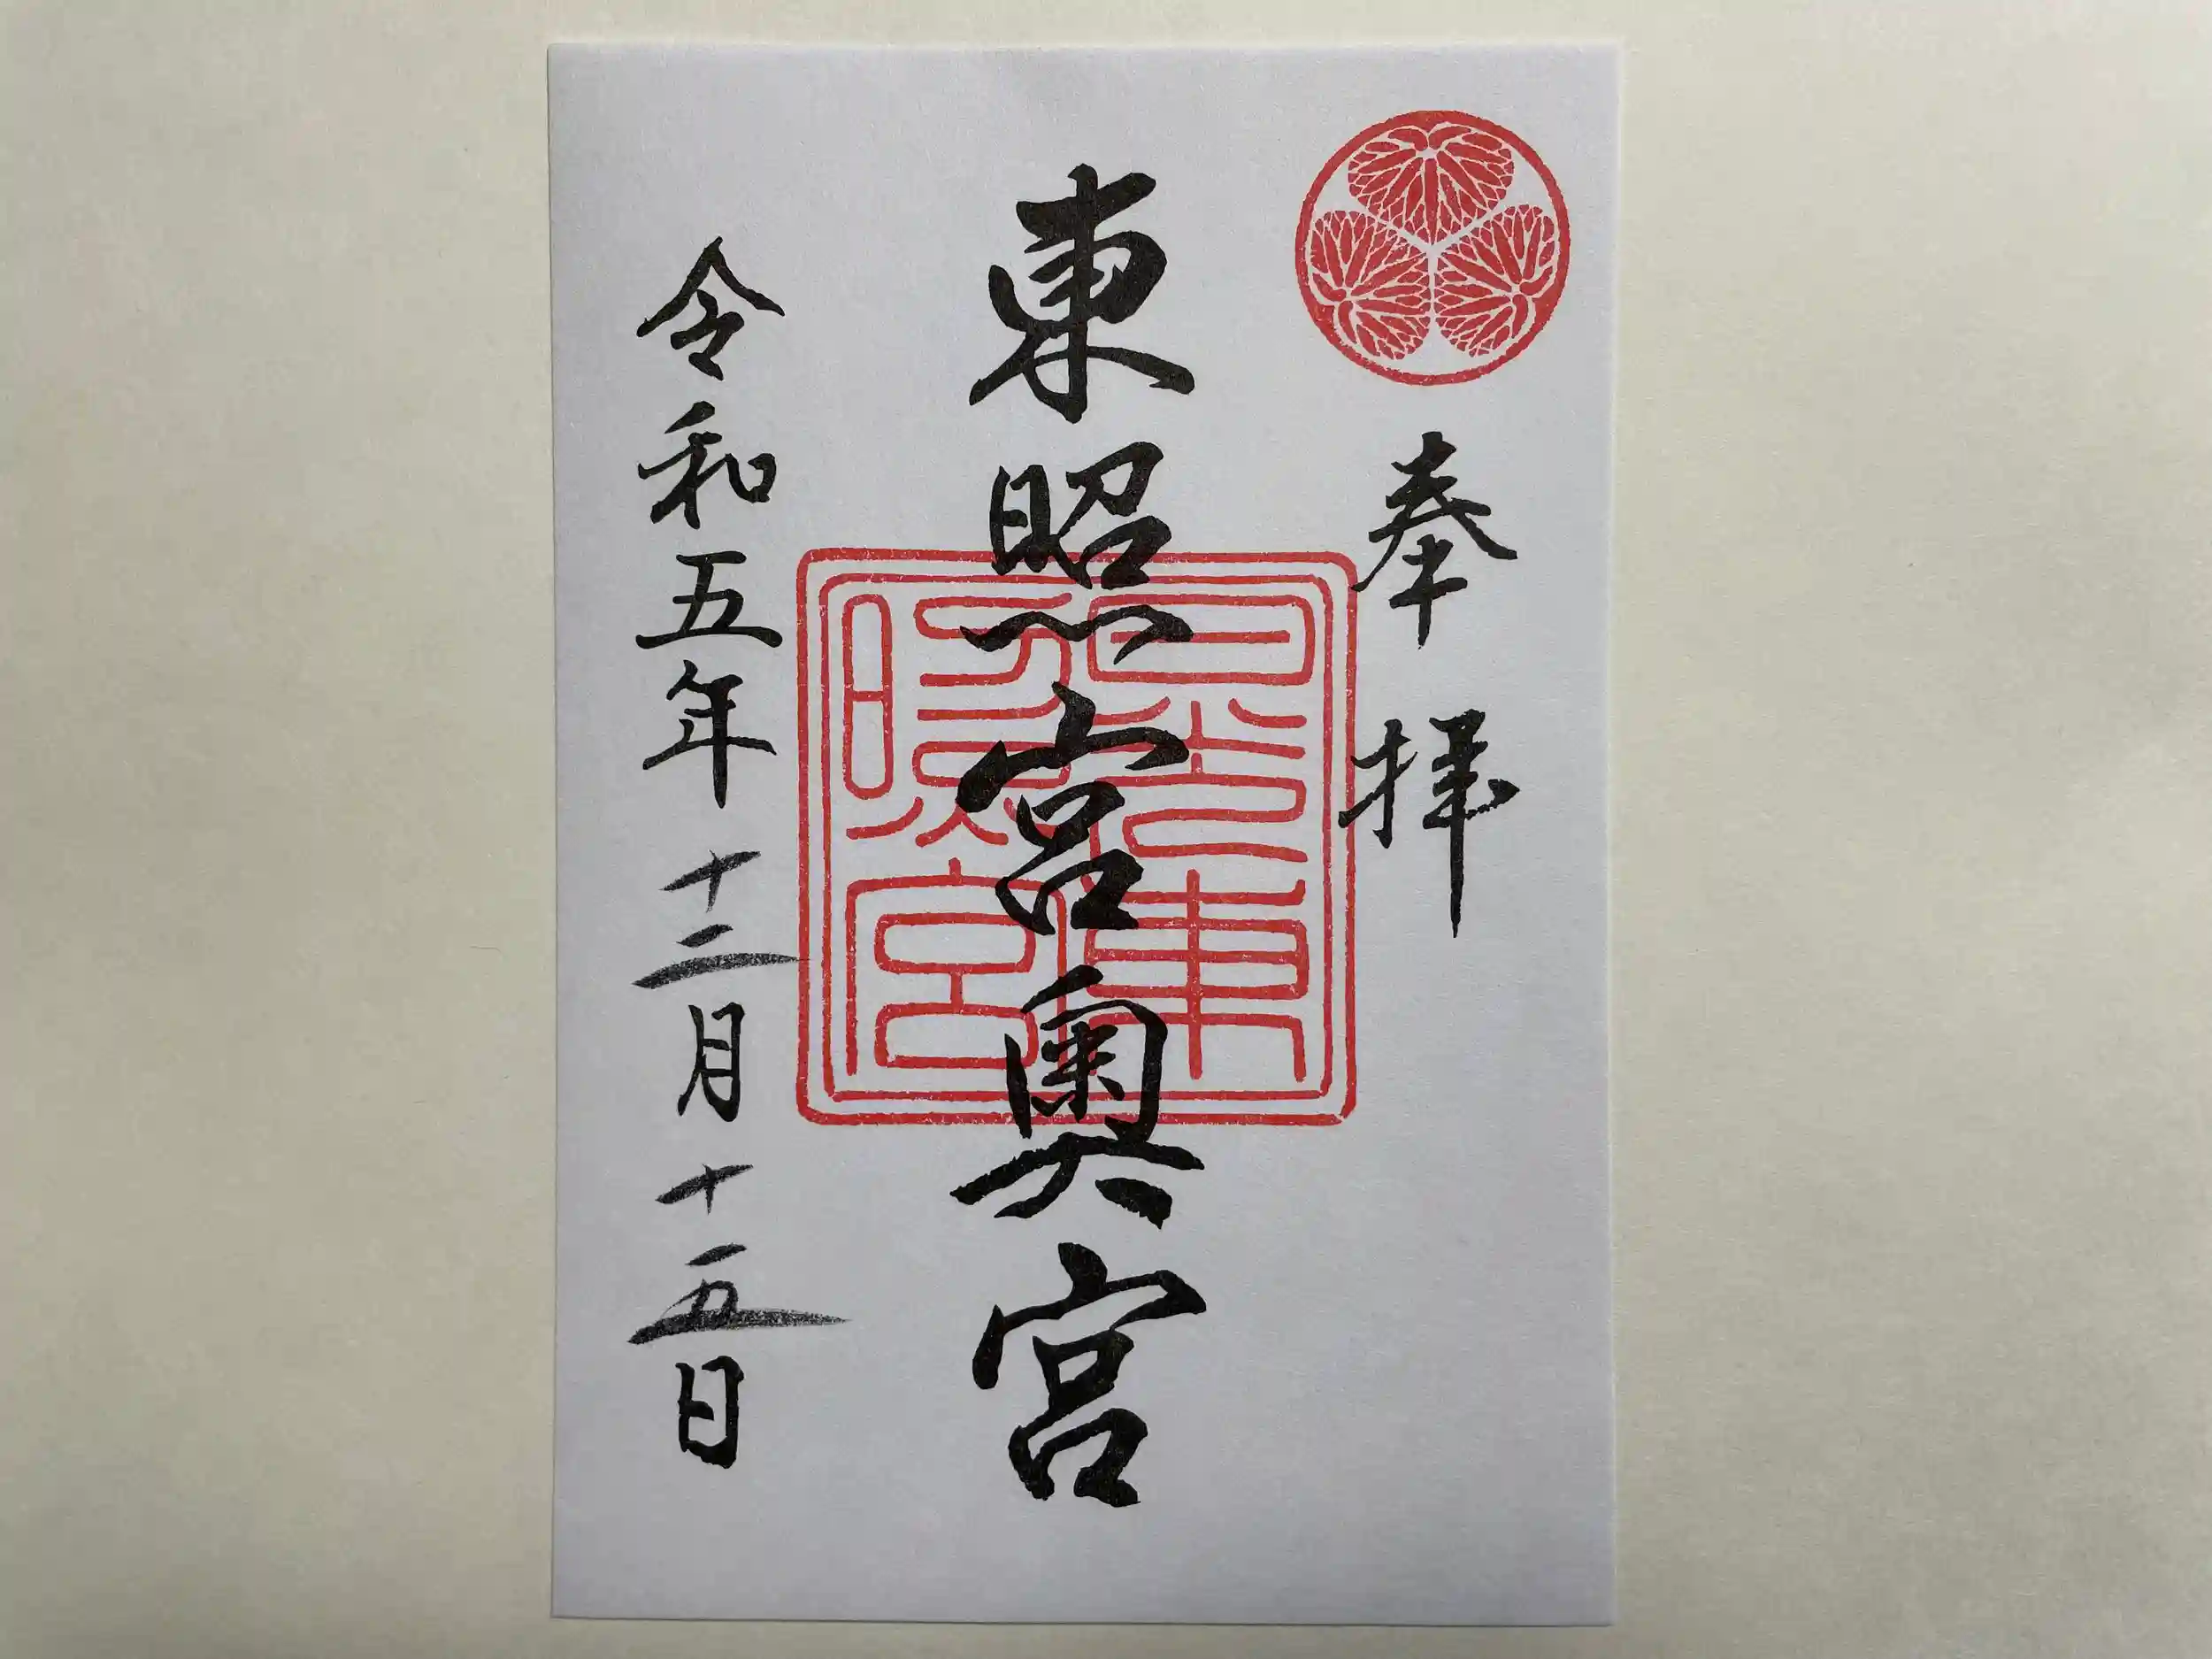 奉拝
東照宮奥宮
日光東照宮
令和五年十二月十五日